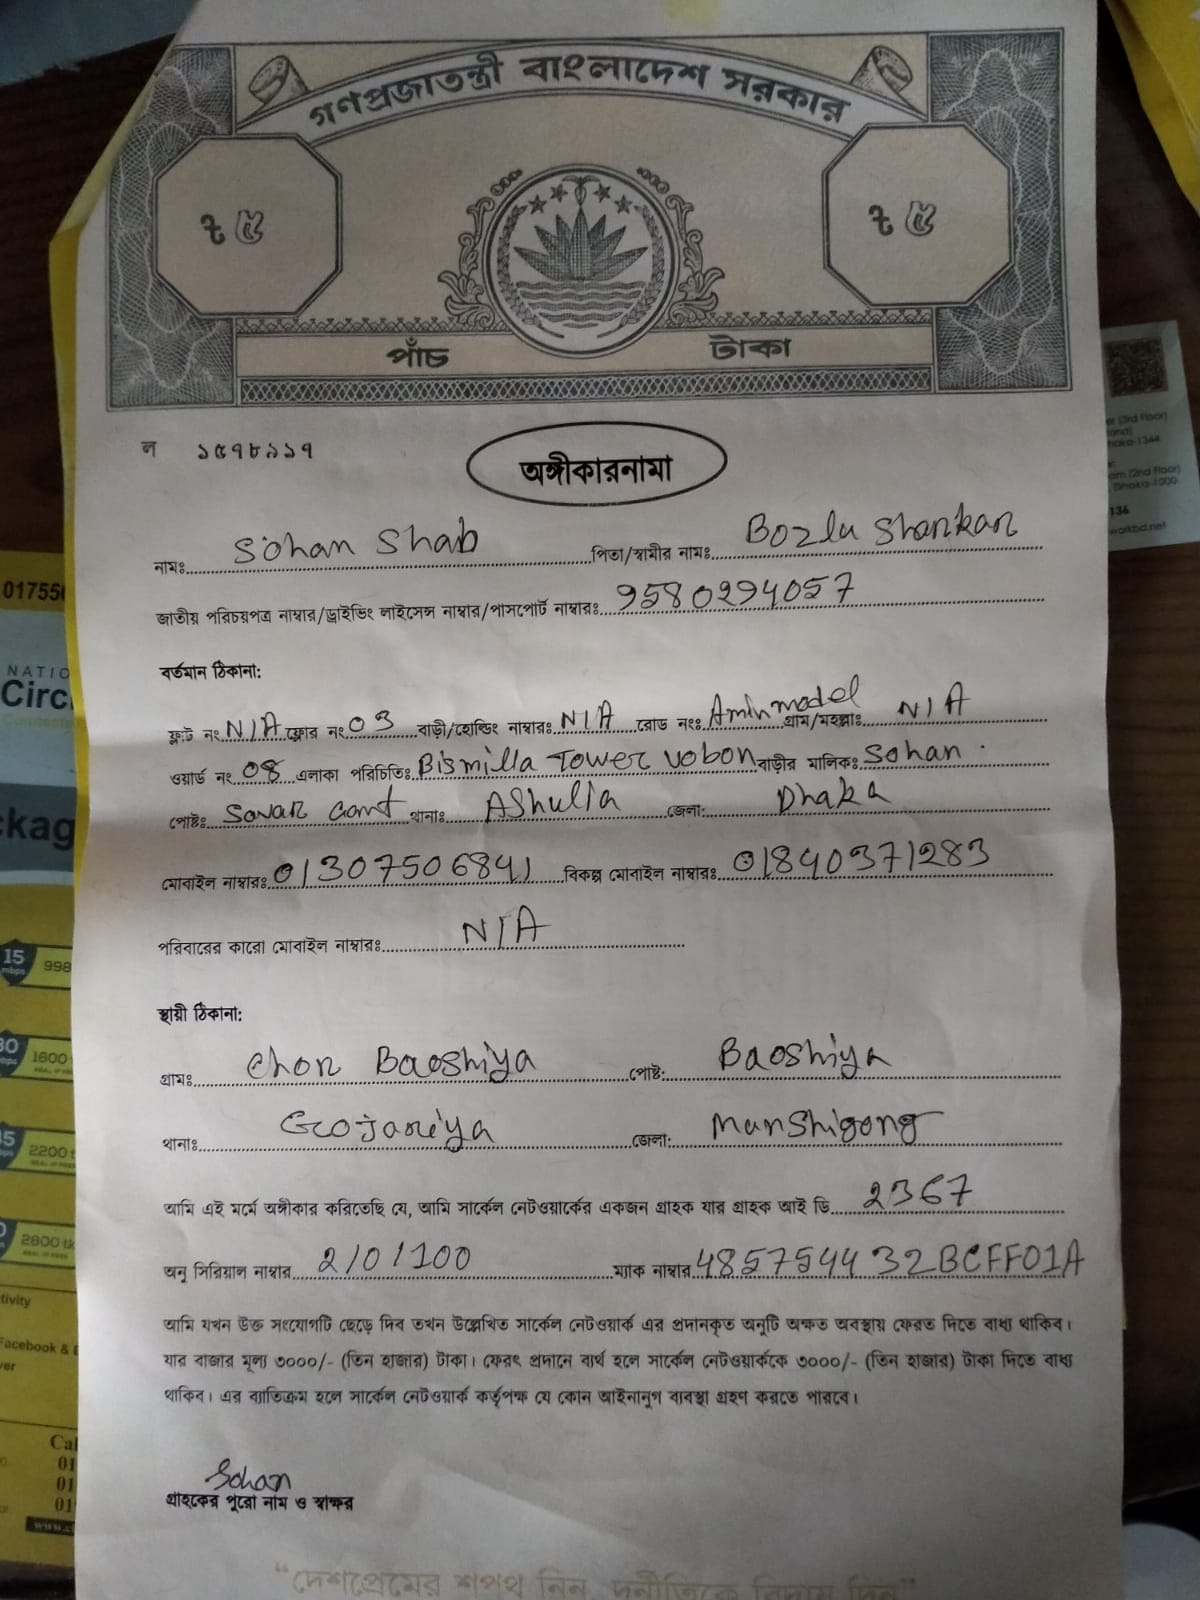 গণপ্রজাতন্ত্রী বাংলাদেশ সরকার
৳ ৫ ৳ ৫
পাঁচ টাকা
ল ১৫৭৮৯১৭
অঙ্গীকারনামা
নামঃ Sohan Shab পিতা/স্বামীর নামঃ Bozlu Shankar
জাতীয় পরিচয়পত্র নাম্বার/ড্রাইভিং লাইসেন্স নাম্বার/পাসপোর্ট নাম্বারঃ 9580294057
বর্তমান ঠিকানা:
ফ্লাট নং N/A ফ্লোর নং 03 বাড়ী/হোল্ডিং নাম্বারঃ N/A রোড নংঃ Amin model গ্রাম/মহল্লাঃ N/A
ওয়ার্ড নং 08 এলাকা পরিচিতিঃ Bismilla Tower vobon বাড়ীর মালিকঃ Sohan
পোষ্টঃ Savar Cant থানাঃ AShulia জেলা: Dhaka
মোবাইল নাম্বারঃ 01307506841 বিকল্প মোবাইল নাম্বারঃ 01840371283
পরিবারের কারো মোবাইল নাম্বারঃ N/A
স্থায়ী ঠিকানা:
গ্রামঃ Chor Baoshiya পোষ্ট: Baoshiya
থানাঃ Gojariya জেলা: Munshigong
আমি এই মর্মে অঙ্গীকার করিতেছি যে, আমি সার্কেল নেটওয়ার্কের একজন গ্রাহক যার গ্রাহক আই ডি 2367
অনু সিরিয়াল নাম্বার 2101100 ম্যাক নাম্বার 4857544432BCFF01A
আমি যখন উক্ত সংযোগটি ছেড়ে দিব তখন উল্লেখিত সার্কেল নেটওয়ার্ক এর প্রদানকৃত অনুটি অক্ষত অবস্থায় ফেরত দিতে বাধ্য থাকিব।
যার বাজার মূল্য ৩০০০/- (তিন হাজার) টাকা। ফেরৎ প্রদানে ব্যর্থ হলে সার্কেল নেটওয়ার্ককে ৩০০০/- (তিন হাজার) টাকা দিতে বাধ্য
থাকিব। এর ব্যতিক্রম হলে সার্কেল নেটওয়ার্ক কর্তৃপক্ষ যে কোন আইনানুগ ব্যবস্থা গ্রহণ করতে পারবে।
Sohan
গ্রাহকের পুরো নাম ও স্বাক্ষর
“দেশপ্রেমের শপথ নিন, দুর্নীতিকে বিদায় দিন”
01755
NATIO
Circ
ckag
15 mbps 998
1600
2200
2800 tk
tivity
Facebook &
ver
Cal
01
01
01
er (3rd Floor)
haka-1344
am (2nd Floor)
Dhaka-1000.
136
workbd.net